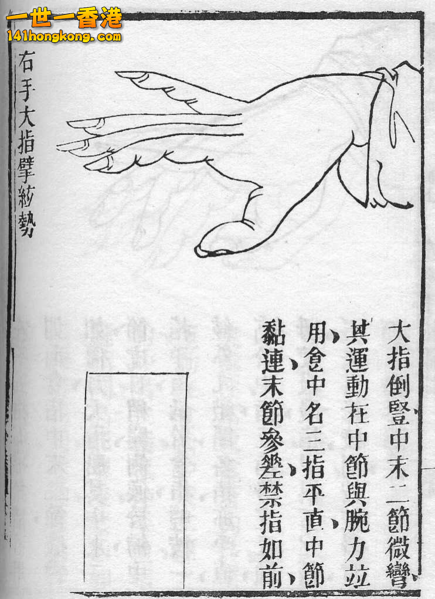 一世一香港
141hongkong.com
右手大指擘絃勢
大指倒豎中末二節微彎
其運動在中節與腕力竝
用食中名三指平直中節
黏連末節參差禁指如前